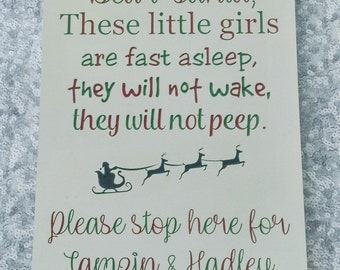 Dear Santa,
These little girls
are fast asleep,
they will not wake,
they will not peep.
Please stop here for
Tamzin & Hadley